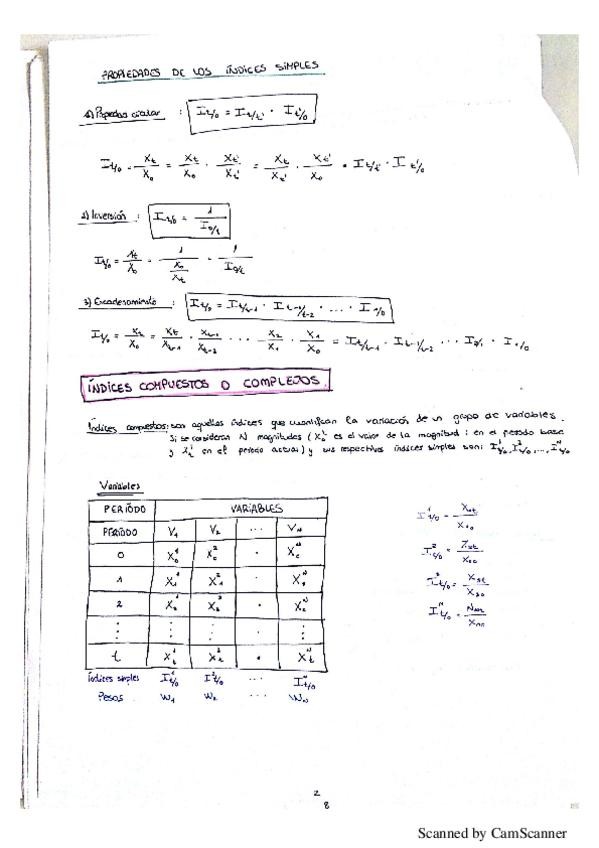 PROPIEDADES DE LOS ÍNDICES SIMPLES
1) Propiedad circular : I t/0 = I t/t' · I t'/0
I t/0 = Xt/X0 = Xt/X0 · Xt'/Xt' = Xt/Xt' · Xt'/X0 = I t/t' · I t'/0
2) Inversión : I t/0 = 1/I 0/t
I t/0 = Xt/X0 = 1/(X0/Xt) = 1/I 0/t
3) Encadenamiento : I t/0 = I t/t-1 · I t-1/t-2 · ... · I 1/0
I t/0 = Xt/X0 = Xt/Xt-1 · Xt-1/Xt-2 ··· X2/X1 · X1/X0 = I t/t-1 · I t-1/t-2 ··· I 2/1 · I 1/0
ÍNDICES COMPUESTOS O COMPLEJOS.
Índices compuestos: son aquellos índices que cuantifican la variación de un grupo de variables.
Si se consideran N magnitudes (X0^i es el valor de la magnitud i en el periodo base
y Xt^i en el periodo actual) y sus respectivos índices simples son: I^1 t/0, I^2 t/0, ..., I^N t/0
Variables
PERÍODO VARIABLES
PERÍODO V1 V2 ... VN
0 X0^1 X0^2 · X0^N
1 X1^1 X1^2 · X1^N
2 X2^1 X2^2 · X2^N
⋮ ⋮ ⋮ · ⋮
t Xt^1 Xt^2 · Xt^N
Índices simples I^1 t/0 I^2 t/0 ... I^N t/0
Pesos W1 W2 ... WN
I^1 t/0 =
I^2 t/0 =
I^3 t/0 =
I^N t/0 =
2
8
Scanned by CamScanner